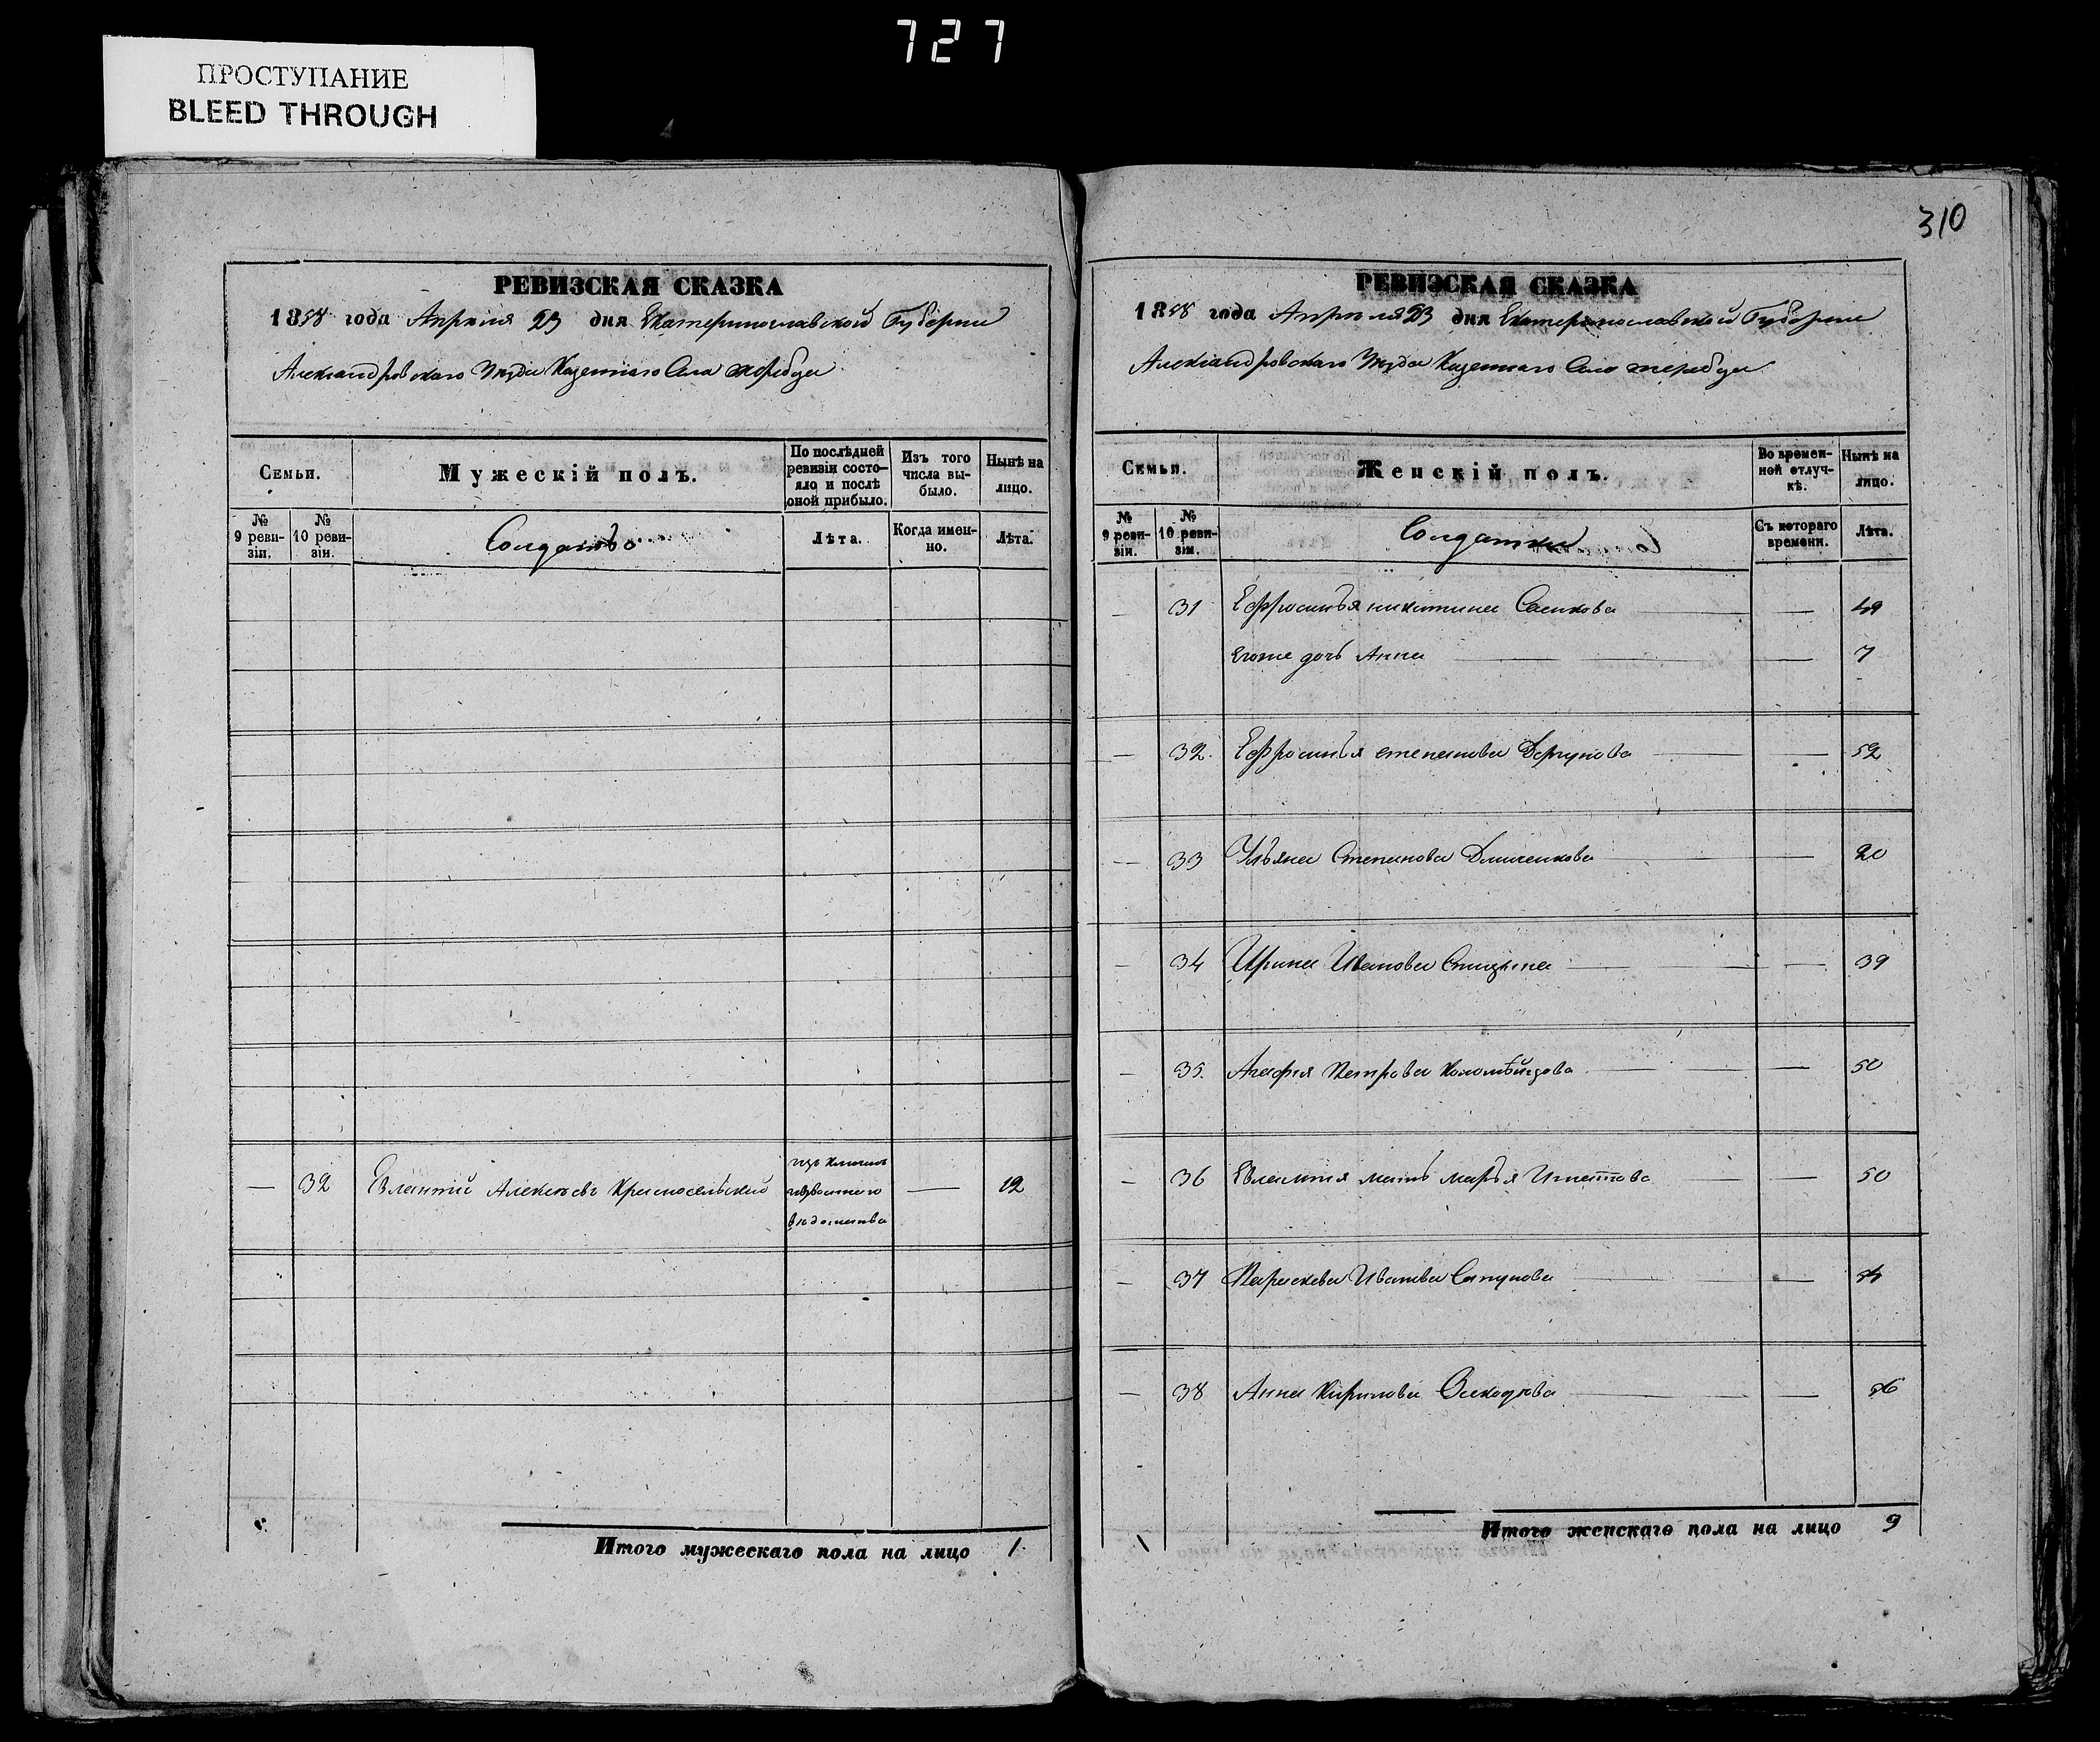 727
ПРОСТУПАНИЕ
BLEED THROUGH
310
РЕВИЗСКАЯ СКАЗКА
1858 года Апреля 23 дня Екатеринославской Губернии
Александровскаго Уезда Казеннаго Села
Семьи.
Мужескій полъ.
По послѣдней ревизіи состояло и послѣ оной прибыло.
Изъ того числа выбыло.
Нынѣ на лицо.
№ 9 ревизіи.
№ 10 ревизіи.
Лѣта.
Когда именно.
Лѣта.
— 32 Алексѣевъ Красносельский — 12
ведомства
Итого мужескаго пола на лицо 1
РЕВИЗСКАЯ СКАЗКА
1858 года Апреля 23 дня Екатеринославской Губернии
Александровскаго Уезда Казеннаго Села
Семьи.
Женскій полъ.
Во временной отлучкѣ.
Нынѣ на лицо.
№ 9 ревизіи.
№ 10 ревизіи.
Солдатки
Съ котораго времени.
Лѣта.
— 31 Ефросинья никитина — 49
Егоже дочь Анна — 7
— 32. Ефросинья степанова — 52
— 33 Ульяна Степанова — 20
— 34 Ирина Иванова Спицына — 39
— 35. Агафия Петрова Коломѣйцова — 50
— 36 мать марья Игнатова — 50
— 37 Параскева Иванова Сапунова —
— 38 Анна Кирилова —
Итого женскаго пола на лицо 9